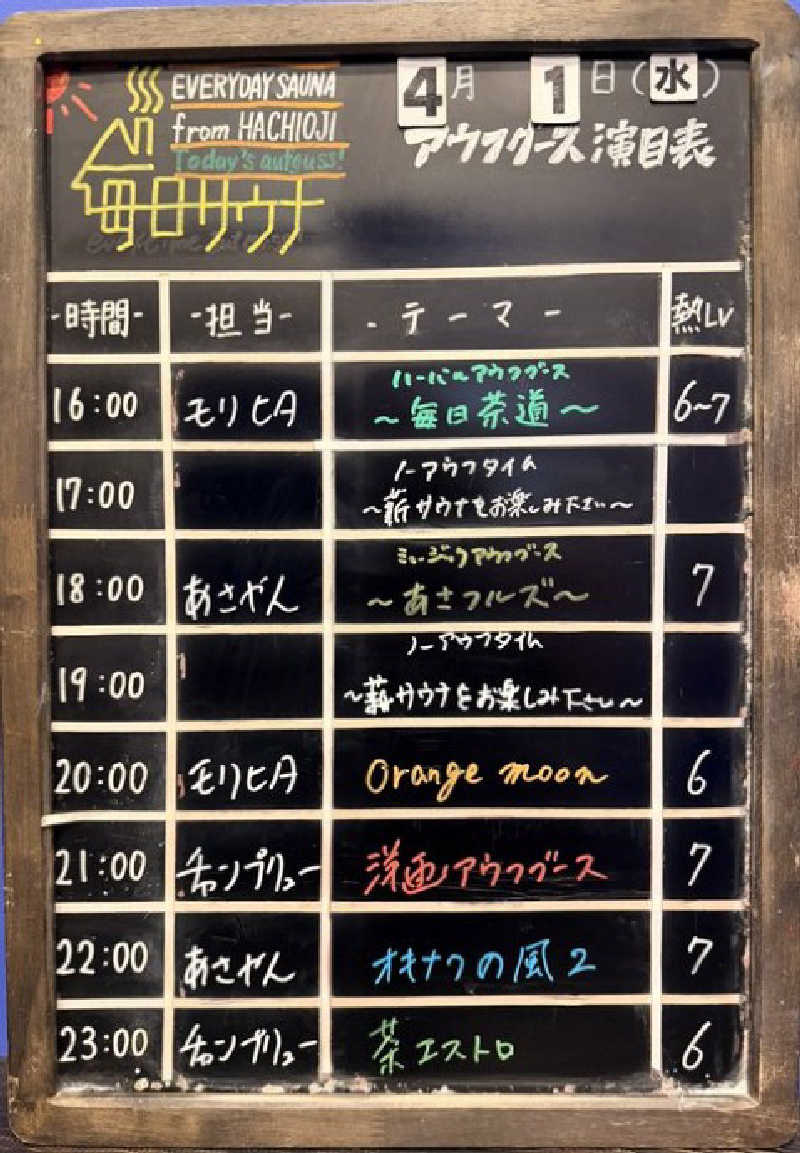 EVERYDAY SAUNA
from HACHIOJI
Today's autouss!
毎日サウナ
4月 1日(水)
アウフグース 演目表
-時間- -担当- -テーマ- 熱LV
16:00 モリヒA ハーバルアウフグース 6~7
~毎日茶道~
17:00 ノーアウフタイム
~薪サウナをお楽しみ下さい~
18:00 あさやん ミュージックアウフグース 7
~あさフルズ~
19:00 ノーアウフタイム
~薪サウナをお楽しみ下さい~
20:00 モリヒA Orange moon 6
21:00 チャンプリュー 洋画アウフグース 7
22:00 あさやん オキナワの風2 7
23:00 チャンプリュー 茶エストロ 6